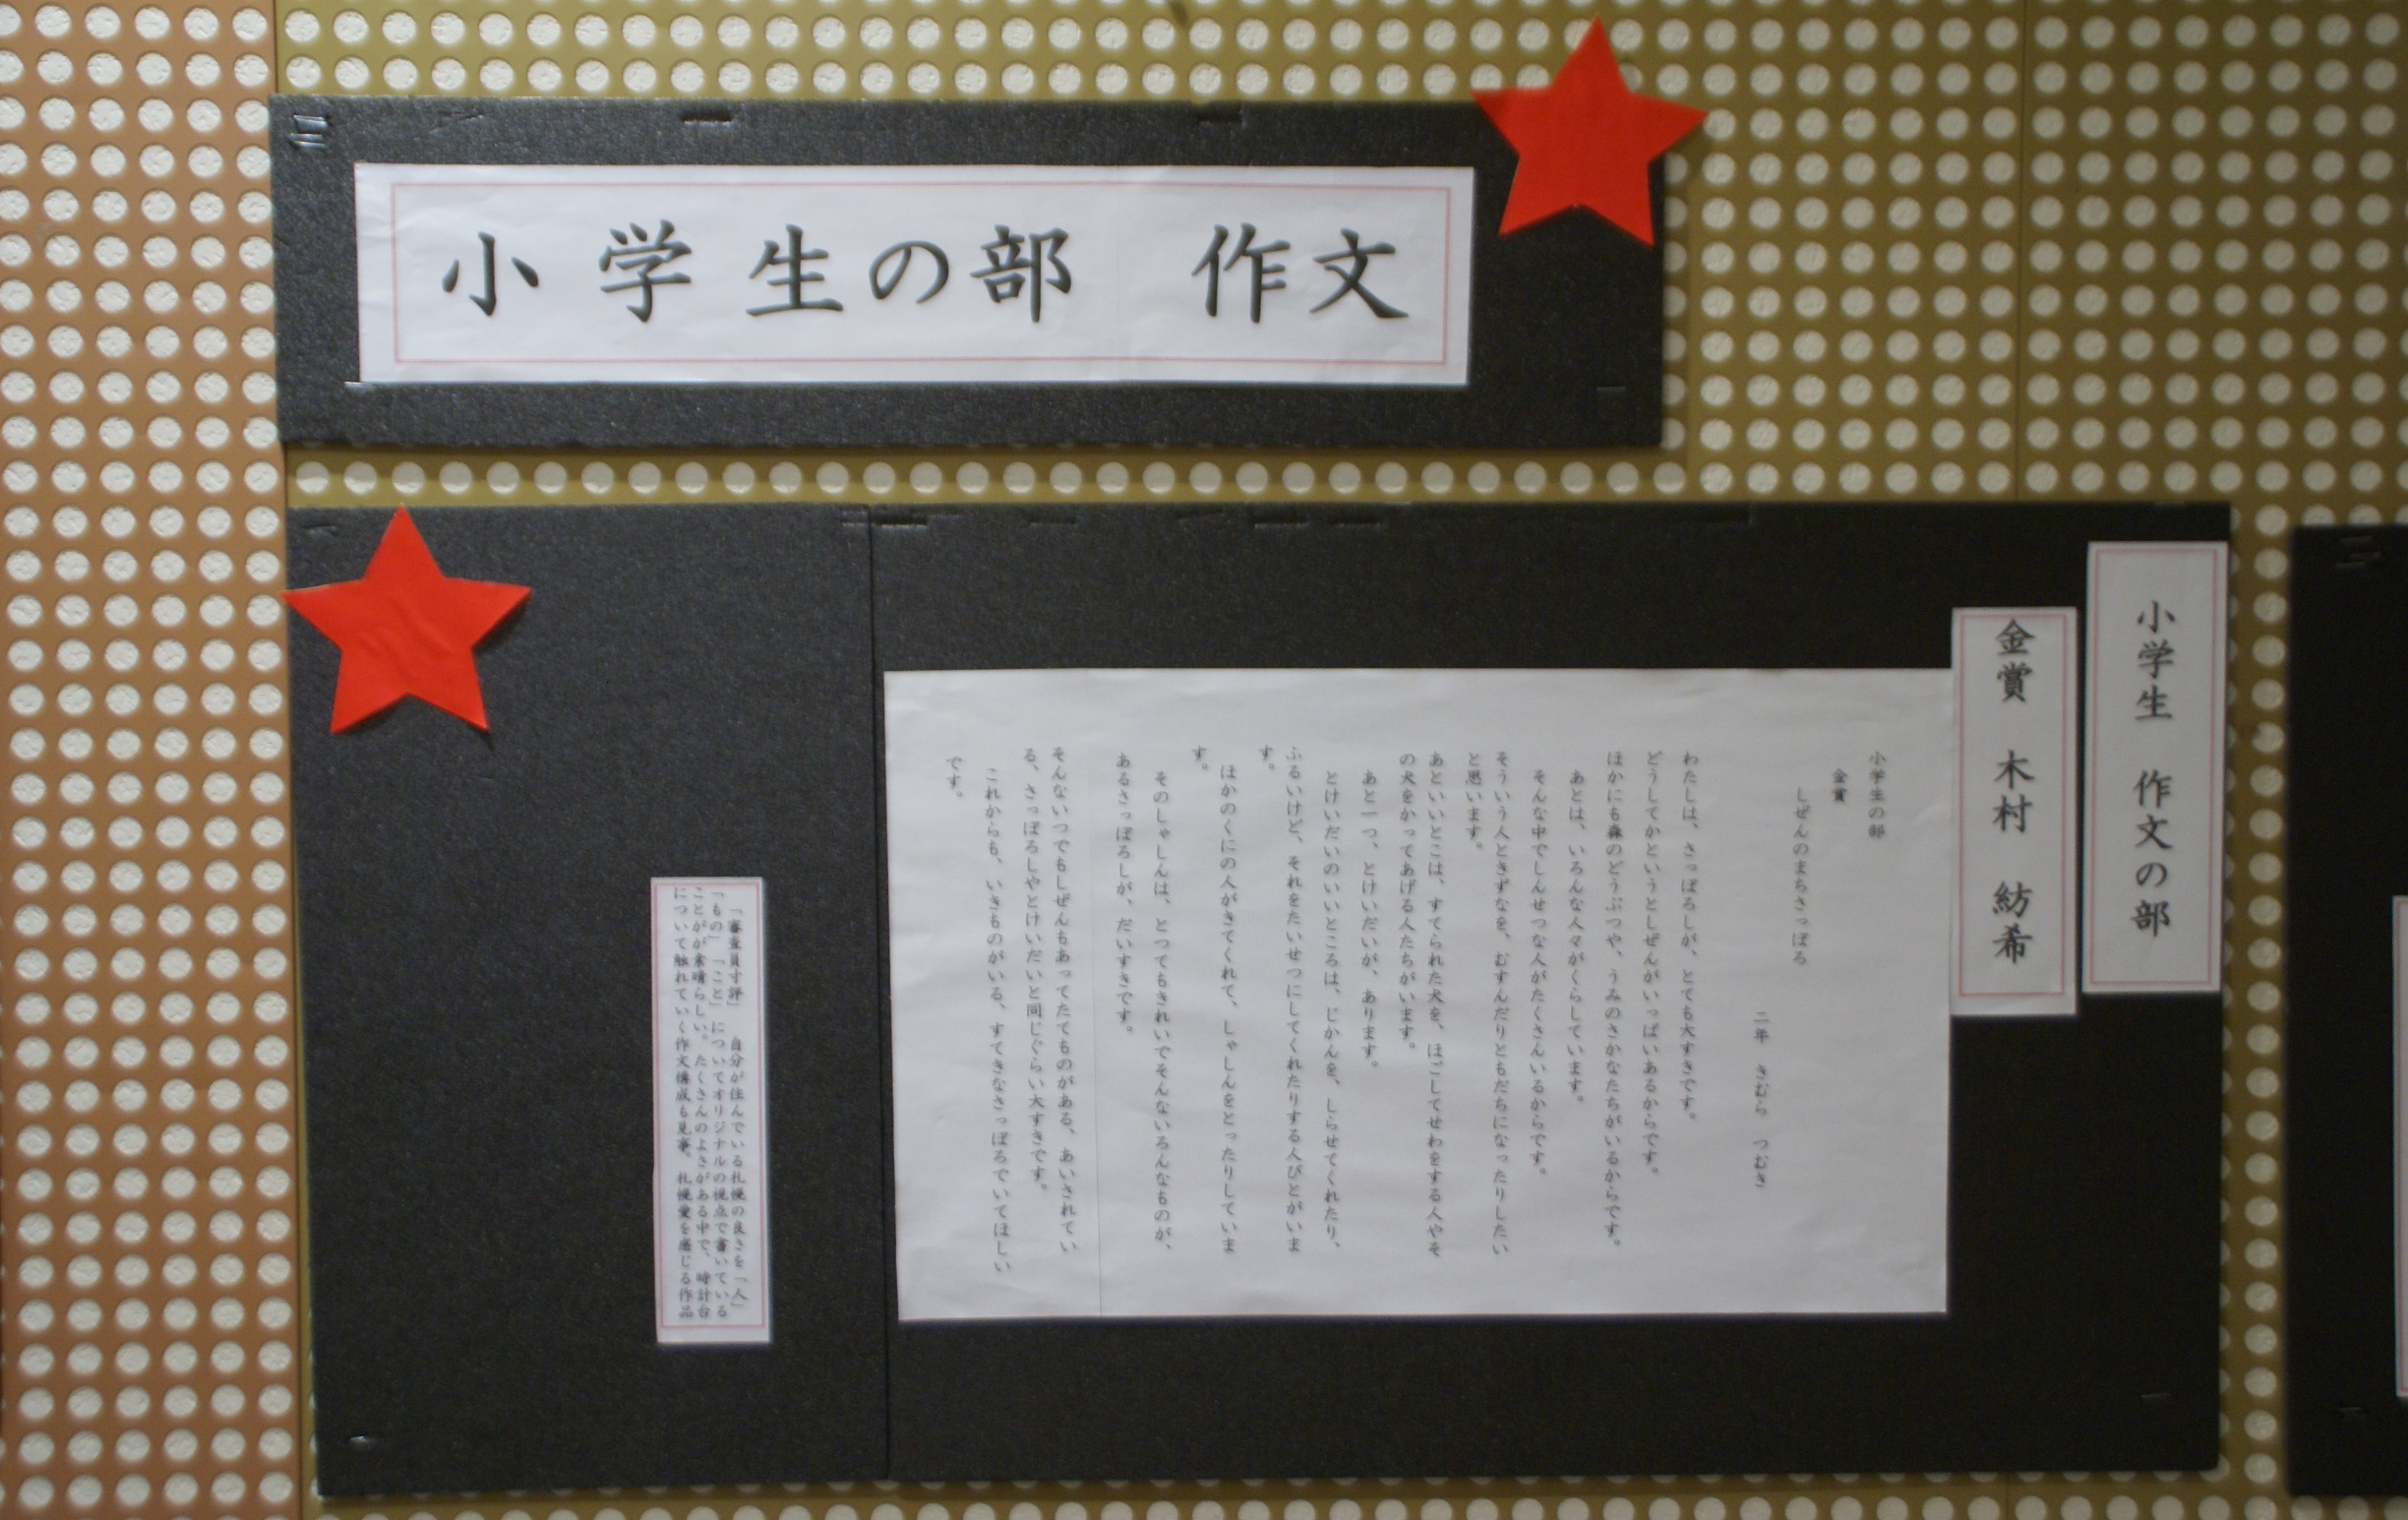 小学生の部　作文
小学生　作文の部
金賞　木村　紡希
小学生の部
金賞
しぜんのまちさっぽろ
二年　きむら　つむき
わたしは、さっぽろしが、とても大すきです。
どうしてかというとしぜんがいっぱいあるからです。
ほかにも森のどうぶつや、うみのさかなたちがいるからです。
あとは、いろんな人々がくらしています。
そんな中でしんせつな人がたくさんいるからです。
そういう人ときずなを、むすんだりともだちになったりしたい
と思います。
あといいとこは、すてられた犬を、ほごしてせわをする人やそ
の犬をかってあげる人たちがいます。
あと一つ、とけいだいが、あります。
とけいだいのいいところは、じかんを、しらせてくれたり、
ふるいけど、それをたいせつにしてくれたりする人びとがいま
す。
ほかのくにの人がきてくれて、しゃしんをとったりしていま
す。
そのしゃしんは、とってもきれいでそんないろんなものが、
あるさっぽろしが、だいすきです。
そんないつでもしぜんもあってたてものがある、あいされてい
る、さっぽろしやとけいだいと同じぐらい大すきです。
これからも、いきものがいる、すてきなさっぽろでいてほしい
です。
「審査員寸評」　自分が住んでいる札幌の良さを「人」
「もの」「こと」についてオリジナルの視点で書いている
ことがが素晴らしい。たくさんのよさがある中で、時計台
について触れていく作文構成も見事。札幌愛を感じる作品